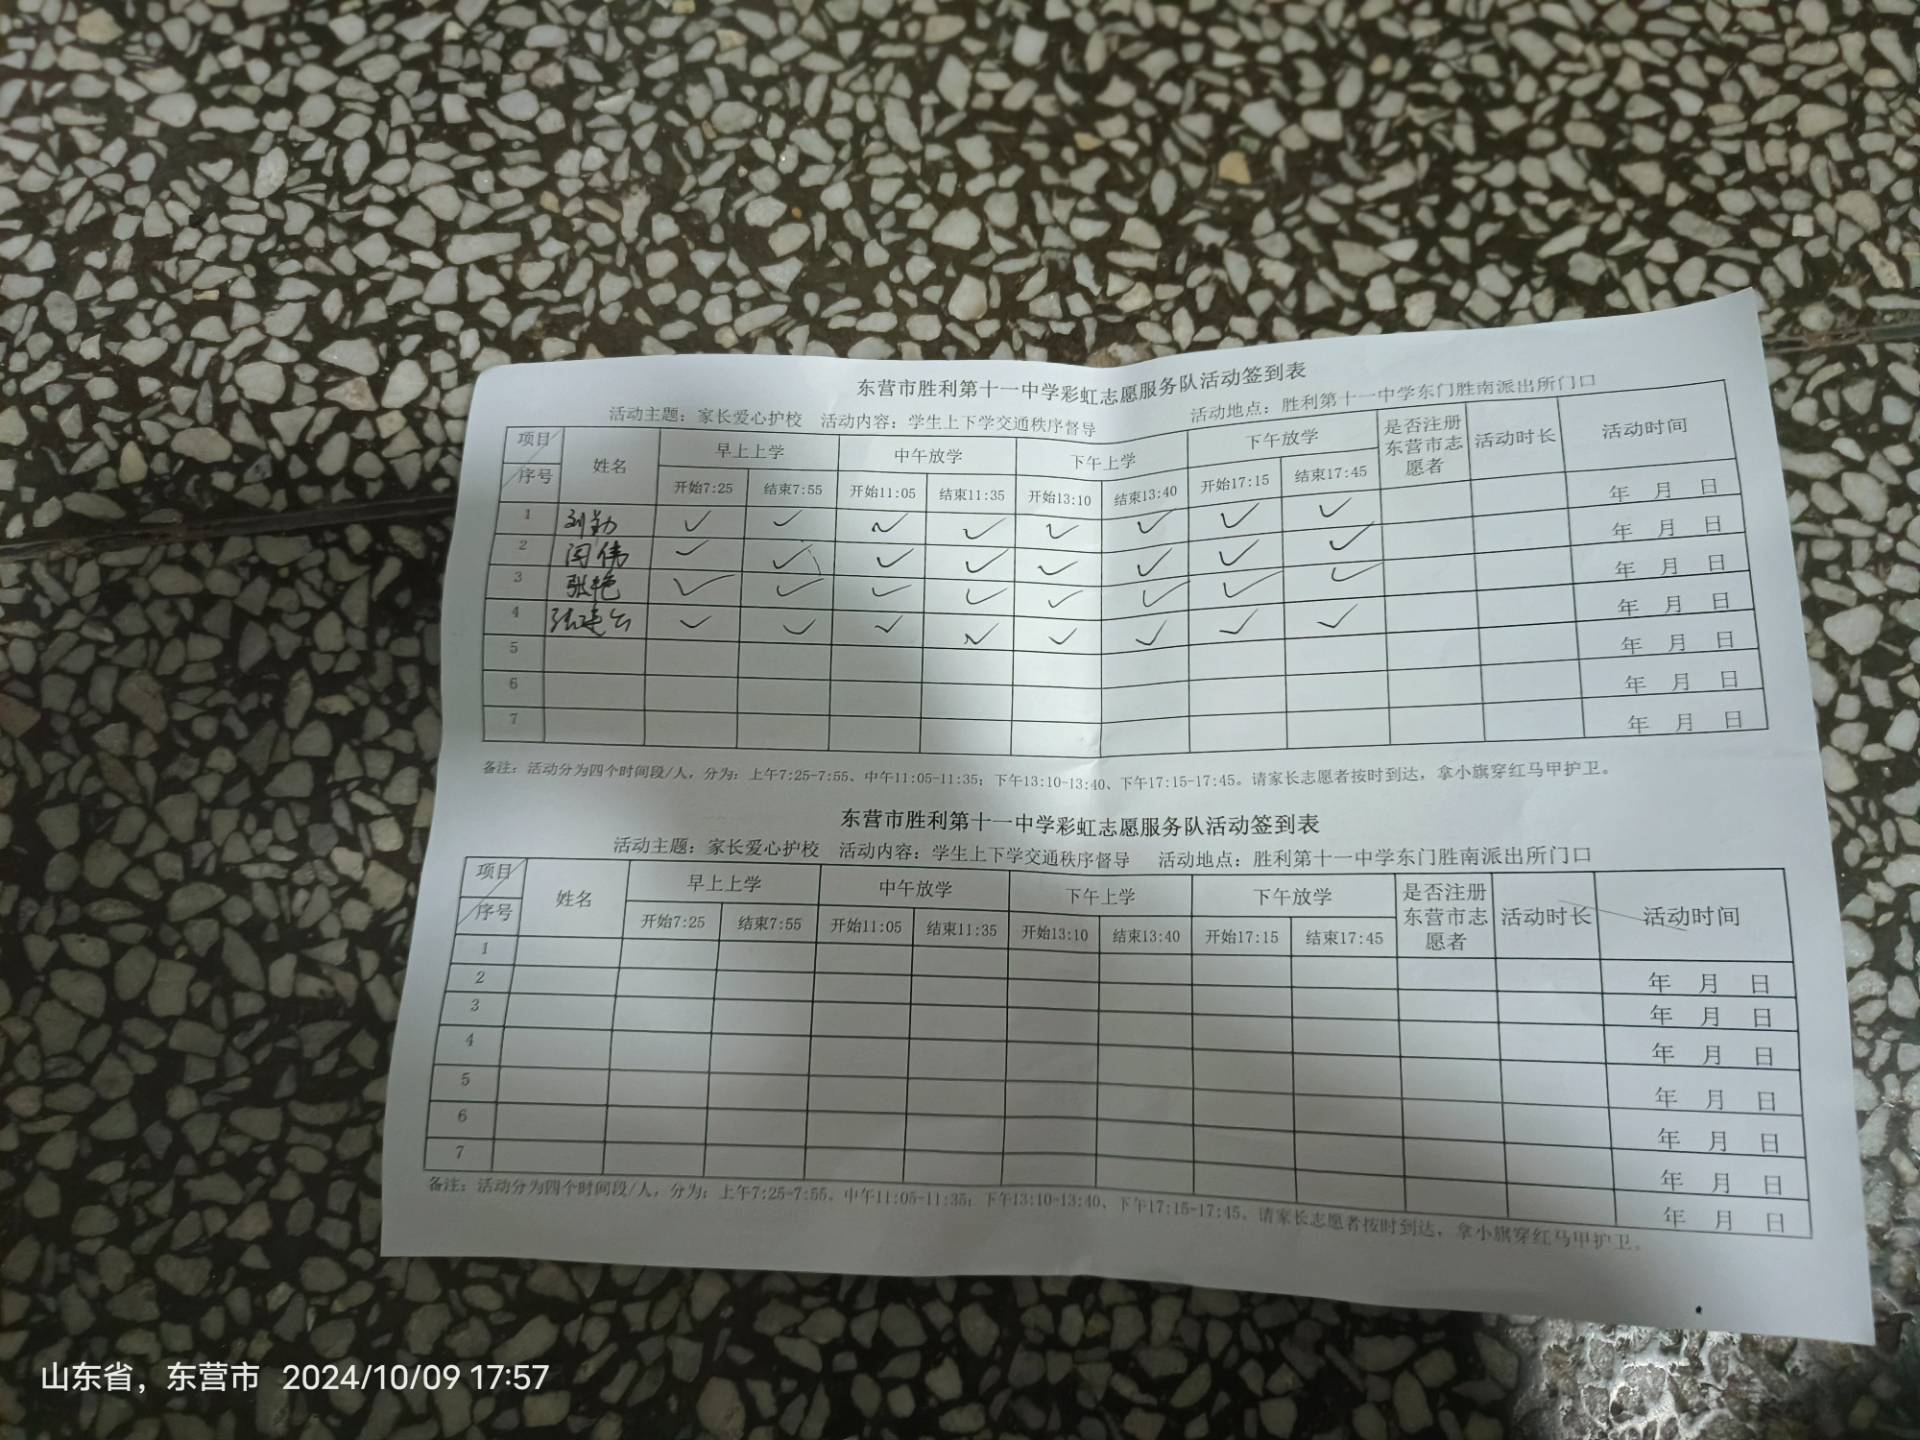 东营市胜利第十一中学彩虹志愿服务队活动签到表
活动主题：家长爱心护校 活动内容：学生上下学交通秩序督导 活动地点：胜利第十一中学东门胜南派出所门口
项目 序号 姓名 早上上学 中午放学 下午上学 下午放学 是否注册东营市志愿者 活动时长 活动时间
开始7:25 结束7:55 开始11:05 结束11:35 开始13:10 结束13:40 开始17:15 结束17:45
1 刘勤 ✓ ✓ ✓ ✓ ✓ ✓ ✓ ✓ 年 月 日
2 闫伟 ✓ ✓ ✓ ✓ ✓ ✓ ✓ ✓ 年 月 日
3 张艳 ✓ ✓ ✓ ✓ ✓ ✓ ✓ ✓ 年 月 日
4 ✓ ✓ ✓ ✓ ✓ ✓ ✓ ✓ 年 月 日
5 年 月 日
6 年 月 日
7 年 月 日
备注：活动分为四个时间段/人，分为：上午7:25-7:55、中午11:05-11:35；下午13:10-13:40、下午17:15-17:45。请家长志愿者按时到达，拿小旗穿红马甲护卫。
东营市胜利第十一中学彩虹志愿服务队活动签到表
活动主题：家长爱心护校 活动内容：学生上下学交通秩序督导 活动地点：胜利第十一中学东门胜南派出所门口
项目 序号 姓名 早上上学 中午放学 下午上学 下午放学 是否注册东营市志愿者 活动时长 活动时间
开始7:25 结束7:55 开始11:05 结束11:35 开始13:10 结束13:40 开始17:15 结束17:45
1 年 月 日
2 年 月 日
3 年 月 日
4 年 月 日
5 年 月 日
6 年 月 日
7 年 月 日
备注：活动分为四个时间段/人，分为：上午7:25-7:55、中午11:05-11:35；下午13:10-13:40、下午17:15-17:45。请家长志愿者按时到达，拿小旗穿红马甲护卫。
山东省，东营市 2024/10/09 17:57